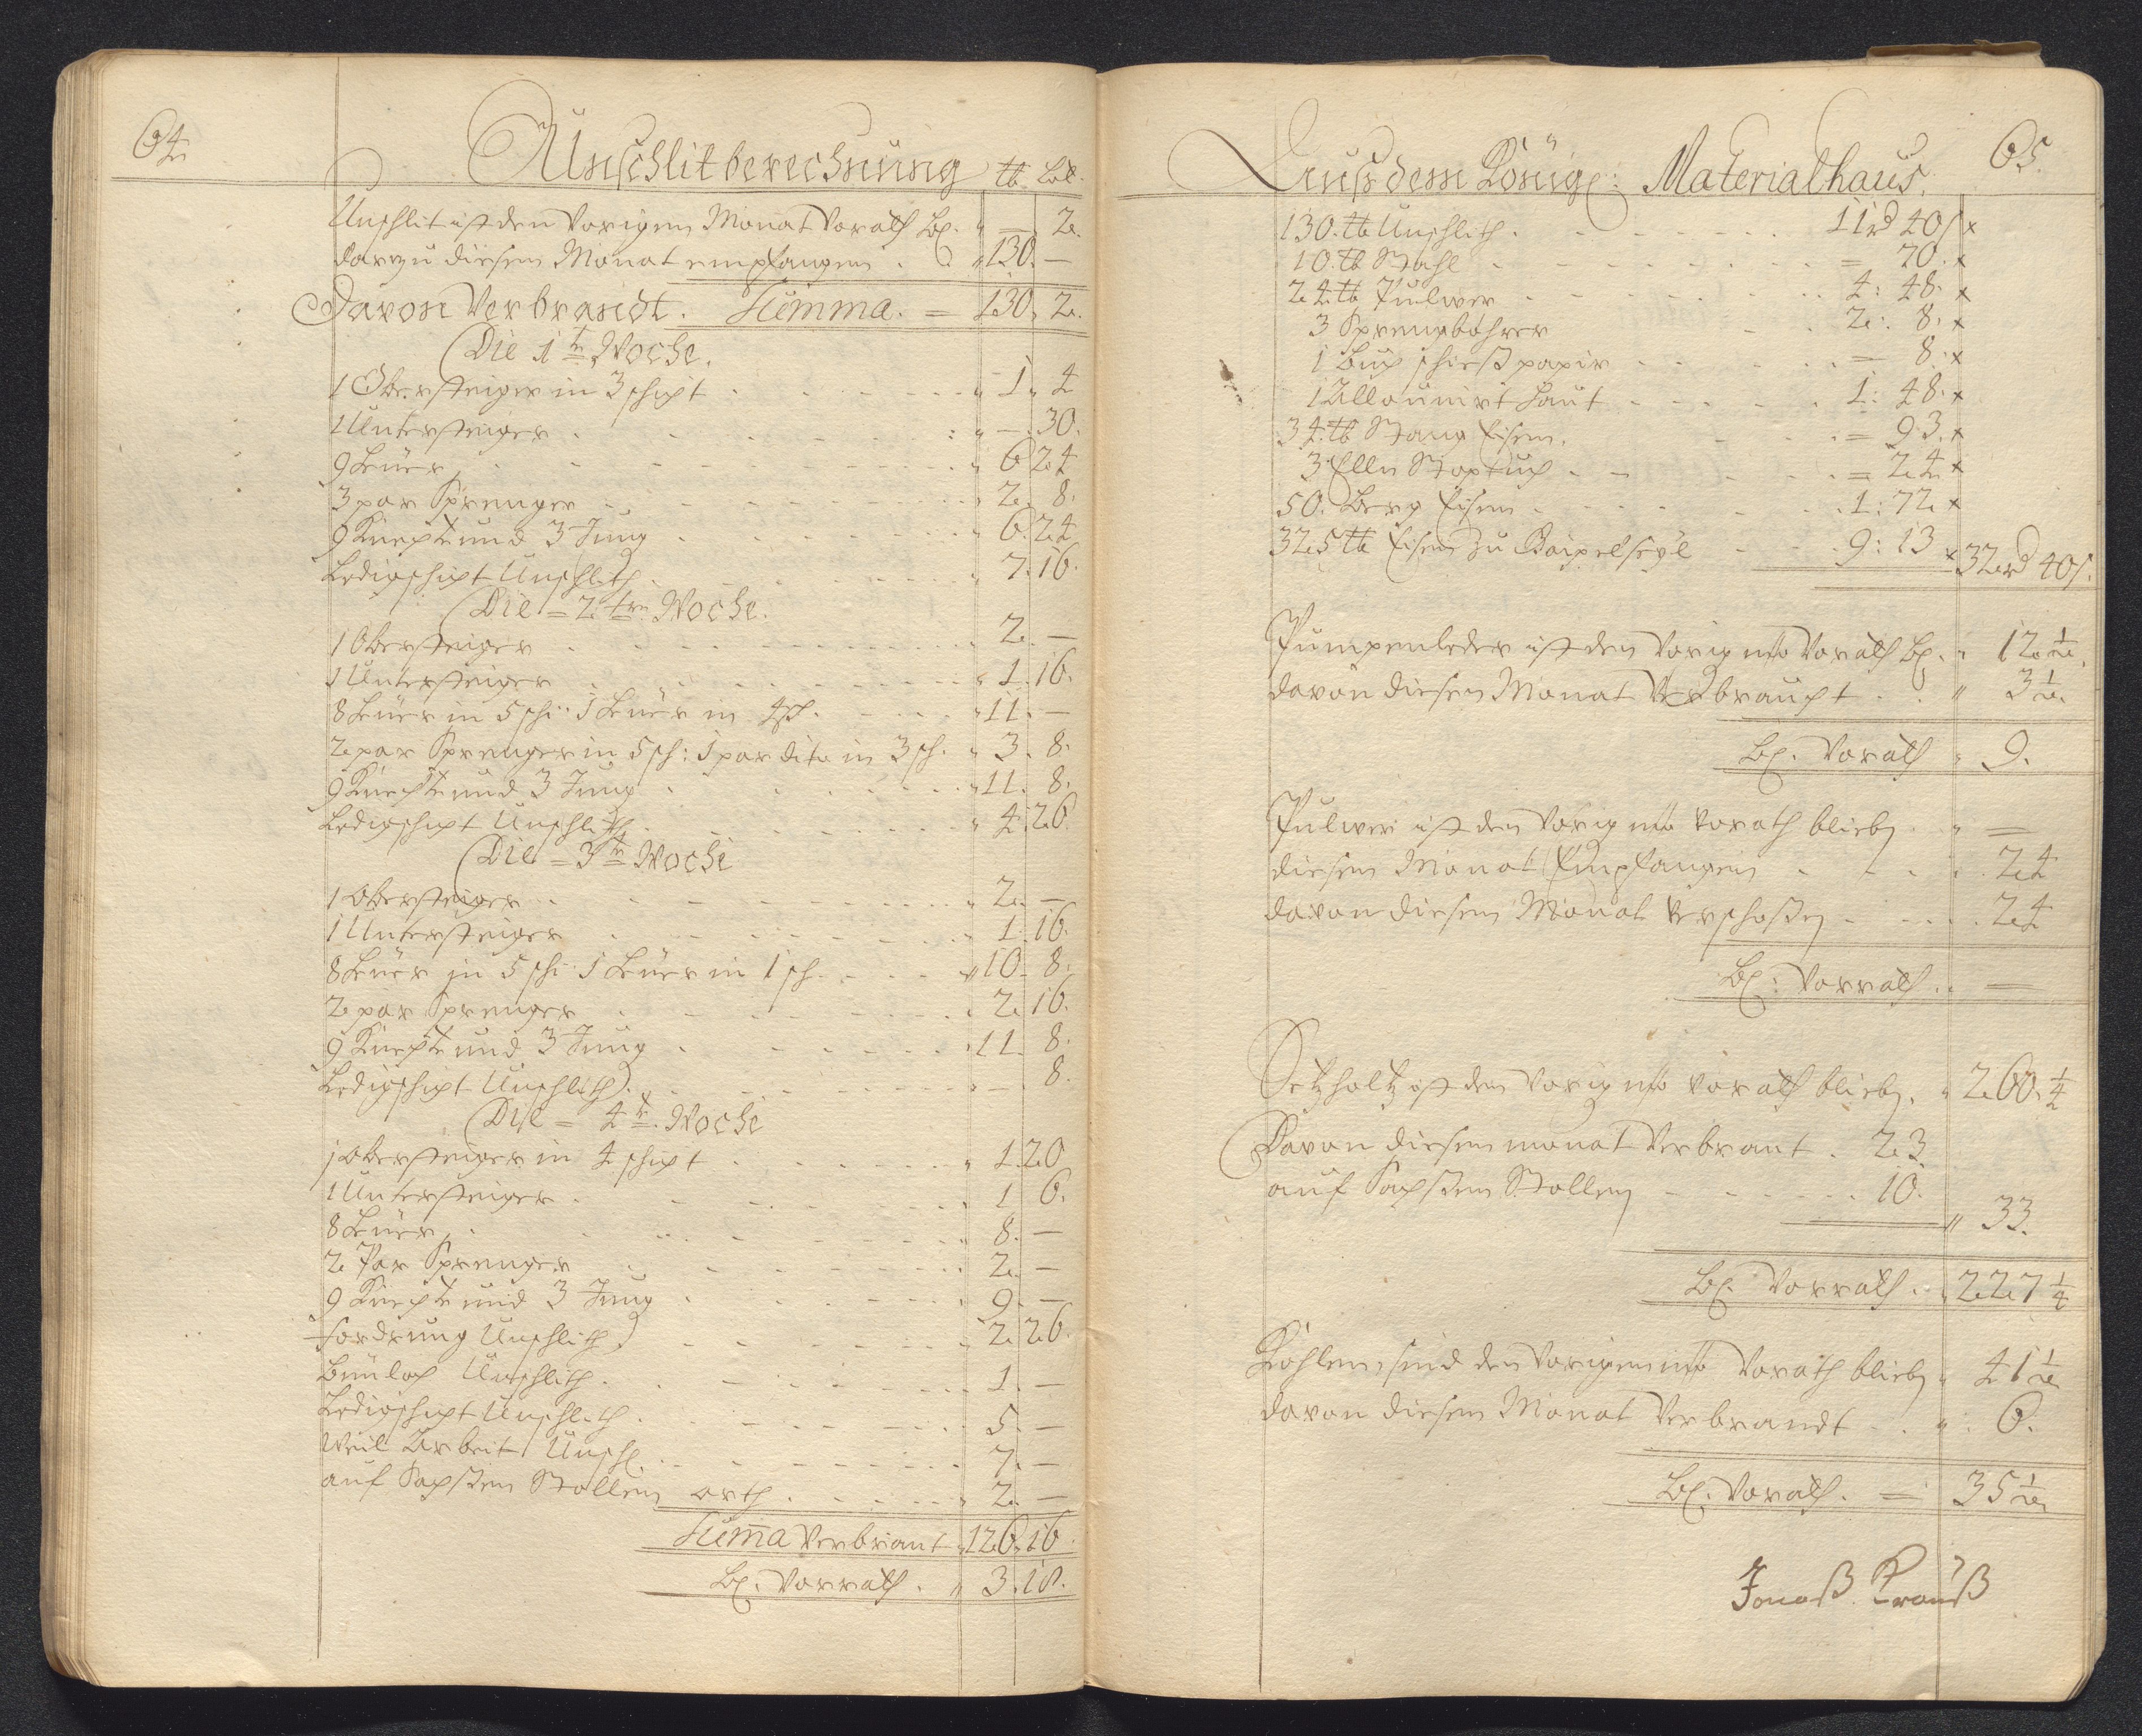 64.
Unschlitberechnung ℔ Lot.
Unschlit ist den Vorigen Monat Vorath bl. „ — 2.
darzu diesen Monat empfangen . „ 130. —
Davon Verbrandt. Summa. = 130. 2.
Die 1te Woche.
1 Obersteiger in 3 schicht „ 1 „ 4
1 Untersteiger . „ — . 30.
9 Heuer „ 6 24
3 par Sprenger „ 2. 8.
9 Knecht und 3 Jung „ 6. 24
Ledigschicht Unschlith . „ 7. 16.
Die = 2te Woche.
1 Obersteiger „ 2. —
1 Untersteiger „ 1. 16.
8 Heuer in 5 schi: 1 Heuer in 4 sch. „ 11. —
2 par Sprenger in 5 sch: 1 par dito in 3 sch. „ 3. 8.
9 Knecht und 3 Jung „ 11. 8.
Ledigschicht Unschlith . „ 4. 26.
Die = 3te Woche
1 Obersteiger . „ 2. —
1 Untersteiger „ 1. 16.
8 Heuer in 5 schi: 1 Heuer in 1 sch. „ 10. 8.
2 par Sprenger . „ 2. 16.
9 Knecht und 3 Jung . „ 11. 8.
Ledigschicht Unschlith . „ — . 8.
Die = 4te Woche
1 Obersteiger in 4 schicht „ 1. 20
1 Untersteiger . „ 1 6.
8 Heuer . „ 8. —
2 Par Sprenger „ 2. —
9 Knecht und 3 Jung „ 9. —
fordrung Unschlith „ 2. 26.
Unschlith . 1. —
Ledigschicht Unschlith . 5. —
Weil Arbeit Unschl. 7. —
auf Sachsen Stollen orth . „ 2. —
Summa Verbrant „ 126. 16.
bl. Vorrath . „ 3. 18.
65.
Aus dem Königl: Materialhaus.
130. ℔ Unschlith . 11 rd 40 s x
10. ℔ Stahl = 70. x
24. ℔ Pulwer 4: 48. x
3 Sprengbohrer 2: 8. x
1 Buch schießpapir = 8. x
1 Allounirt Haut 1: 48. x
34. ℔ Stang Eisen. = 93. x
3 Elln = 24 x
50. Berg Eisen 1: 72 x
325 ℔ Eisen zu 9: 13 x 32 rd 40 s.
Pumpenleder ist den Vorig mo Vorath bl. „ 12 1/2.
davon diesen Monat Verbraucht . „ 3 1/2.
bl. Vorath „ 9.
Pulwer ist den Vorig mo Vorath blieb . „ =
diesen Monat Empfangen . 24
davon diesen Monat Verschossen . 24
bl: Vorrath . . =
Setzholtz ist den Vorig mo Vorath blieb . „ 260. 1/4
Davon diesen monat Verbrant . 23
auf Sachsen Stollen . 10.
„ 33.
bl. Vorrath . . 227 1/4
Kohlen sind den Vorigen mo Vorath blieb „ 41 1/2
davon diesen Monat Verbrandt . „ . 6.
bl. Vorath . = 35 1/2.
Jonaß Krauß